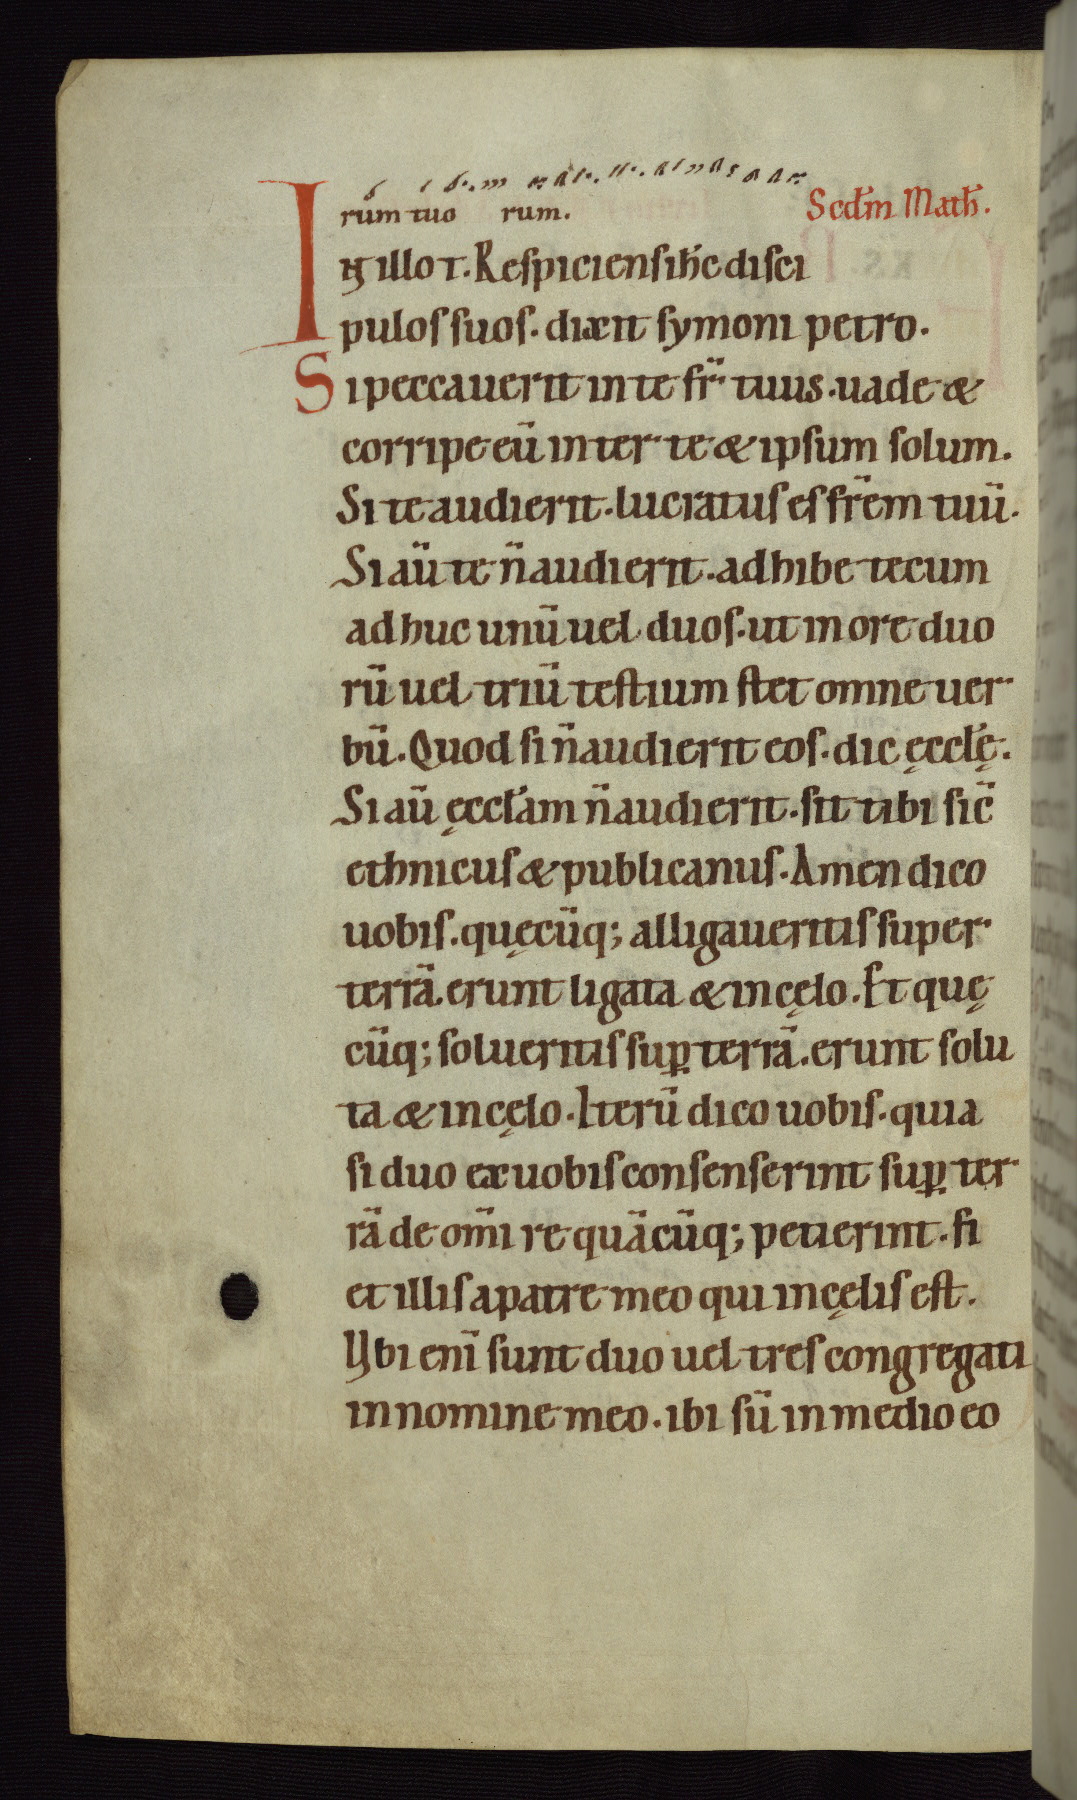 rum tuo rum. Scd̄m Math̄.
IN illo T. Respiciens ih̄c disci
pulos suos. dixit symoni petro.
Si peccauerit in te fr̄ tuus. uade &
corripe eū inter te & ipsum solum.
Si te audierit. lucratus es fr̄em tuū.
Si aū te n̄ audierit. adhibe tecum
adhuc unū uel duos. ut in ore duo
rū uel triū testium stet omne uer
bū. Quod si n̄ audierit eos. dic ęccl̄ę.
Si aū ęccl̄am n̄ audierit. sit tibi sic̄
ethnicus & publicanus. Amen dico
uobis. quęcūq; alligaueritis super
terrā. erunt ligata & in cęlo. Et quę
cūq; solueritis sup̱ terrā. erunt solu
ta & in cęlo. Iterū dico uobis. quia
si duo ex uobis consenserint sup̱ ter
rā de om̄i re quācūq; petierint. fi
et illis a patre meo qui in cęlis est.
Vbi eni̅ sunt duo uel tres congregati
in nomine meo. ibi sū in medio eo